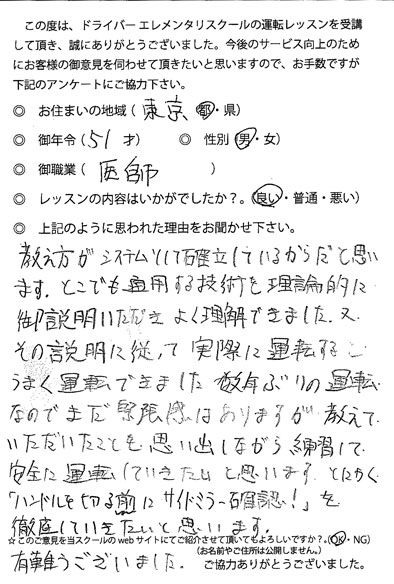 この度は、ドライバー エレメンタリスクールの運転レッスンを受講
して頂き、誠にありがとうございました。今後のサービス向上のため
にお客様の御意見を伺わせて頂きたいと思いますので、お手数ですが
下記のアンケートにご協力下さい。
◎ お住まいの地域( 東京 都・県)
◎ 御年令( 51 才) ◎ 性別(男・女)
◎ 御職業( 医師 )
◎ レッスンの内容はいかがでしたか?。(良い・普通・悪い)
◎ 上記のように思われた理由をお聞かせ下さい。
教え方がシステムとして確立しているからだと思い
ます。どこでも通用する技術を理論的に
御説明いただき よく理解できました。又
その説明に従って 実際に運転すると
うまく運転できました 数年ぶりの運転
なのでまだ緊張感はありますが 教えて
いただいたことを思い出しながら 練習して
安全に運転していきたいと思います とにかく
「ハンドルを切る前にサイドミラー確認!」を
徹底していきたいと思います。
☆このご意見を当スクールの web サイトにてご紹介させて頂いてもよろしいですか?。(OK・NG)
(お名前やご住所は公開しません。)
有難うございました。 ご協力ありがとうございました。